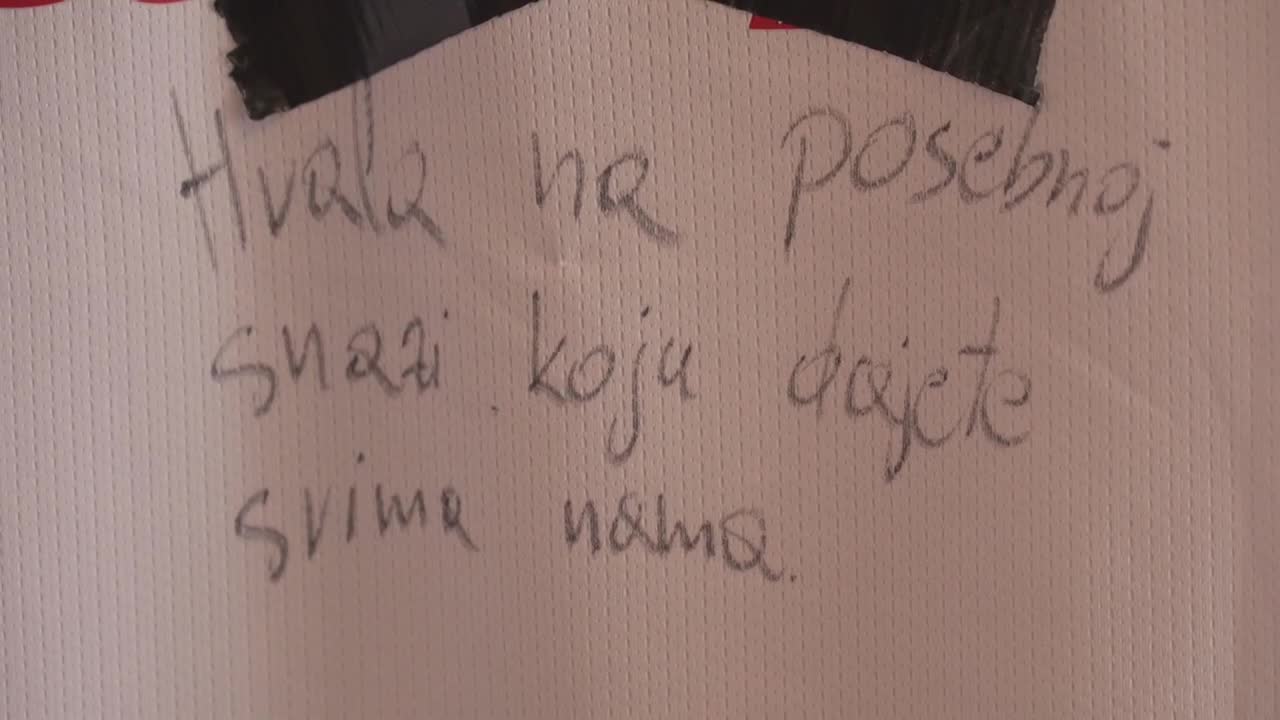 Hvala na posebnoj
snazi koju dajete
svima nama.